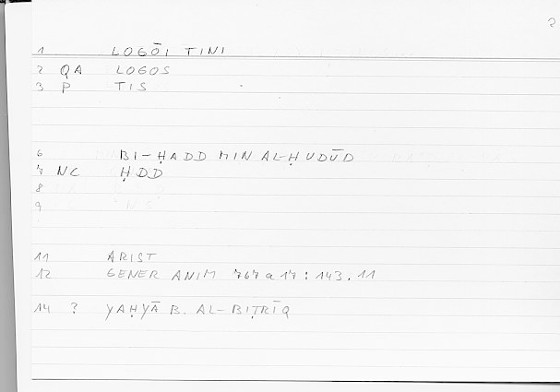 2
1 LOGŌI TINI
2 QA LOGOS
3 P TIS
6 BI-ḤADD MIN AL-ḤUDŪD
7 NC ḤDD
8
9
11 ARIST
12 GENER ANIM 767a17 : 143.11
14 ? YAḤYĀ B. AL-BIṬRĪQ